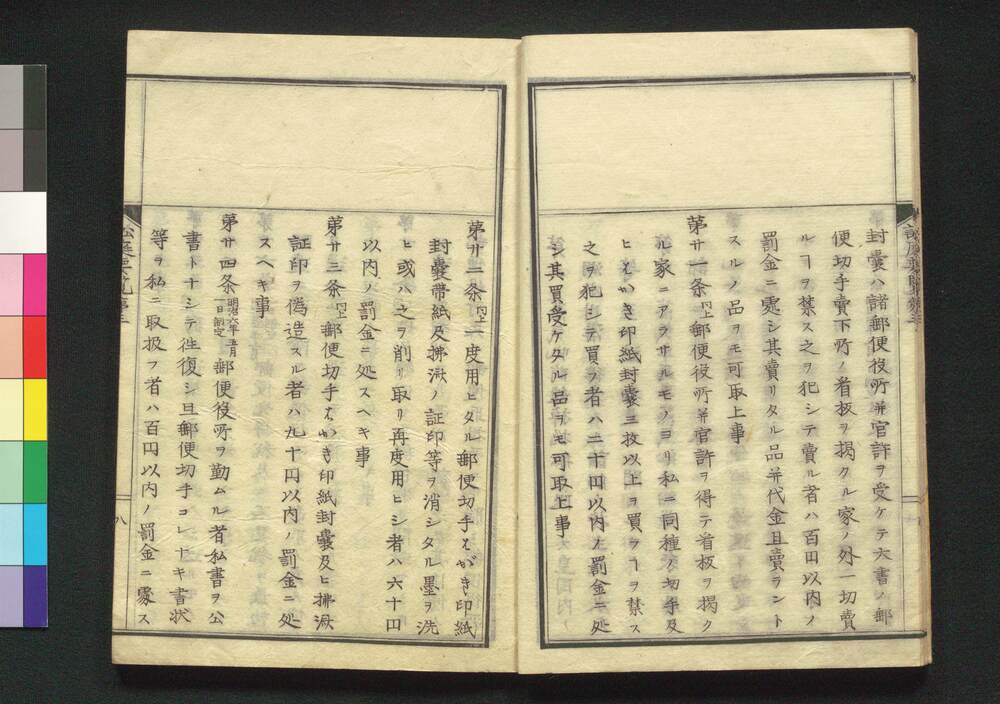 封嚢ハ諸郵便役所并官許ヲ受ケテ大書ノ郵
便切手賣下所ノ看板ヲ掲クル家ノ外一切賣
ルヿヲ禁ス之ヲ犯シテ賣ル者ハ百円以内ノ
罰金ニ處シ其賣リタル品并代金且賣ラント
スルノ品ヲモ可取上事
第廿一条同上郵便役所并官許ヲ得テ看板ヲ掲ク
ル家ニアラサルモノヨリ私ニ同種ノ切手及
ヒはがき印紙封嚢三枚以上ヲ買フヿヲ禁ス
之ヲ犯シテ買フ者ハ二十円以内ノ罰金ニ処
シ其買受ケタル品ヲモ可取上事
第廿二条同上一度用ヒタル郵便切手はがき印紙
封嚢帯紙及拂濟ノ証印等ヲ消シタル墨ヲ洗
ヒ或ハ之ヲ削リ取リ再度用ヒシ者ハ六十円
以内ノ罰金ニ処スヘキ事
第廿三条同上郵便切手はがき印紙封嚢及ヒ拂濟
証印ヲ偽造スル者ハ九十円以内ノ罰金ニ処
スヘキ事
第廿四条明治六年五月一日額定郵便役所ヲ勤ムル者私書ヲ公
書トナシテ往復シ且郵便切手コレナキ書状
等ヲ私ニ取扱フ者ハ百円以内ノ罰金ニ處ス
八